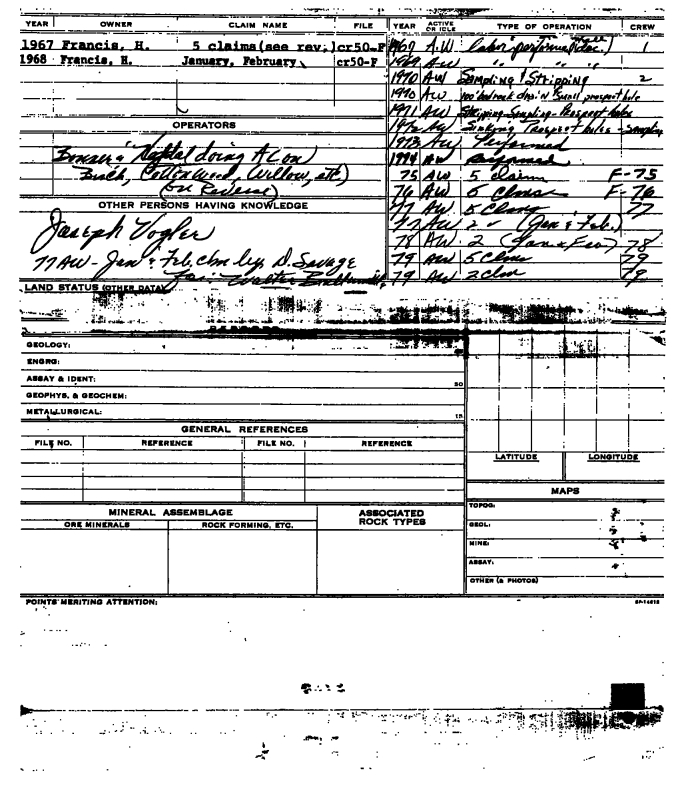 YEAR OWNER CLAIM NAME FILE
1967 Francis, H. 5 claims(see rev.) cr50-F
1968 Francis, H. January, February cr50-F
OPERATORS
doing A Con
Birch, Cottonwood, Willow, etc)
(on Reverse)
OTHER PERSONS HAVING KNOWLEDGE
Joseph Vogler
77 AW - Jan & Feb. clm by D. Savage
for Walter
LAND STATUS (OTHER DATA)
YEAR ACTIVE OR IDLE TYPE OF OPERATION CREW
1967 A.W. labor performed 1
1969 AW " " "
1970 AW Sampling & Stripping 2
1970 AW 100' bedrock drain & small prospect hole
1971 AW Stripping-Sampling-Prospect holes
1972 AW Sinking Prospect holes - Sampling
1973 AW Performed
1974 AW Performed
75 AW 5 claim F-75
76 AW 5 clms F-76
77 AW 5 Clms 77
77 AW 2 " (Jan & Feb.)
78 AW 2 (Jan & Feb) 78
79 AW 5 Clms 79
79 AW 2 clm 79
GEOLOGY:
ENGRG:
ASSAY & IDENT:
GEOPHYS. & GEOCHEM:
METALLURGICAL:
GENERAL REFERENCES
FILE NO. REFERENCE FILE NO. REFERENCE
LATITUDE LONGITUDE
MINERAL ASSEMBLAGE
ORE MINERALS ROCK FORMING, ETC.
ASSOCIATED ROCK TYPES
MAPS
TOPOG:
GEOL:
MINE:
ASSAY:
OTHER (& PHOTOS)
POINTS MERITING ATTENTION: